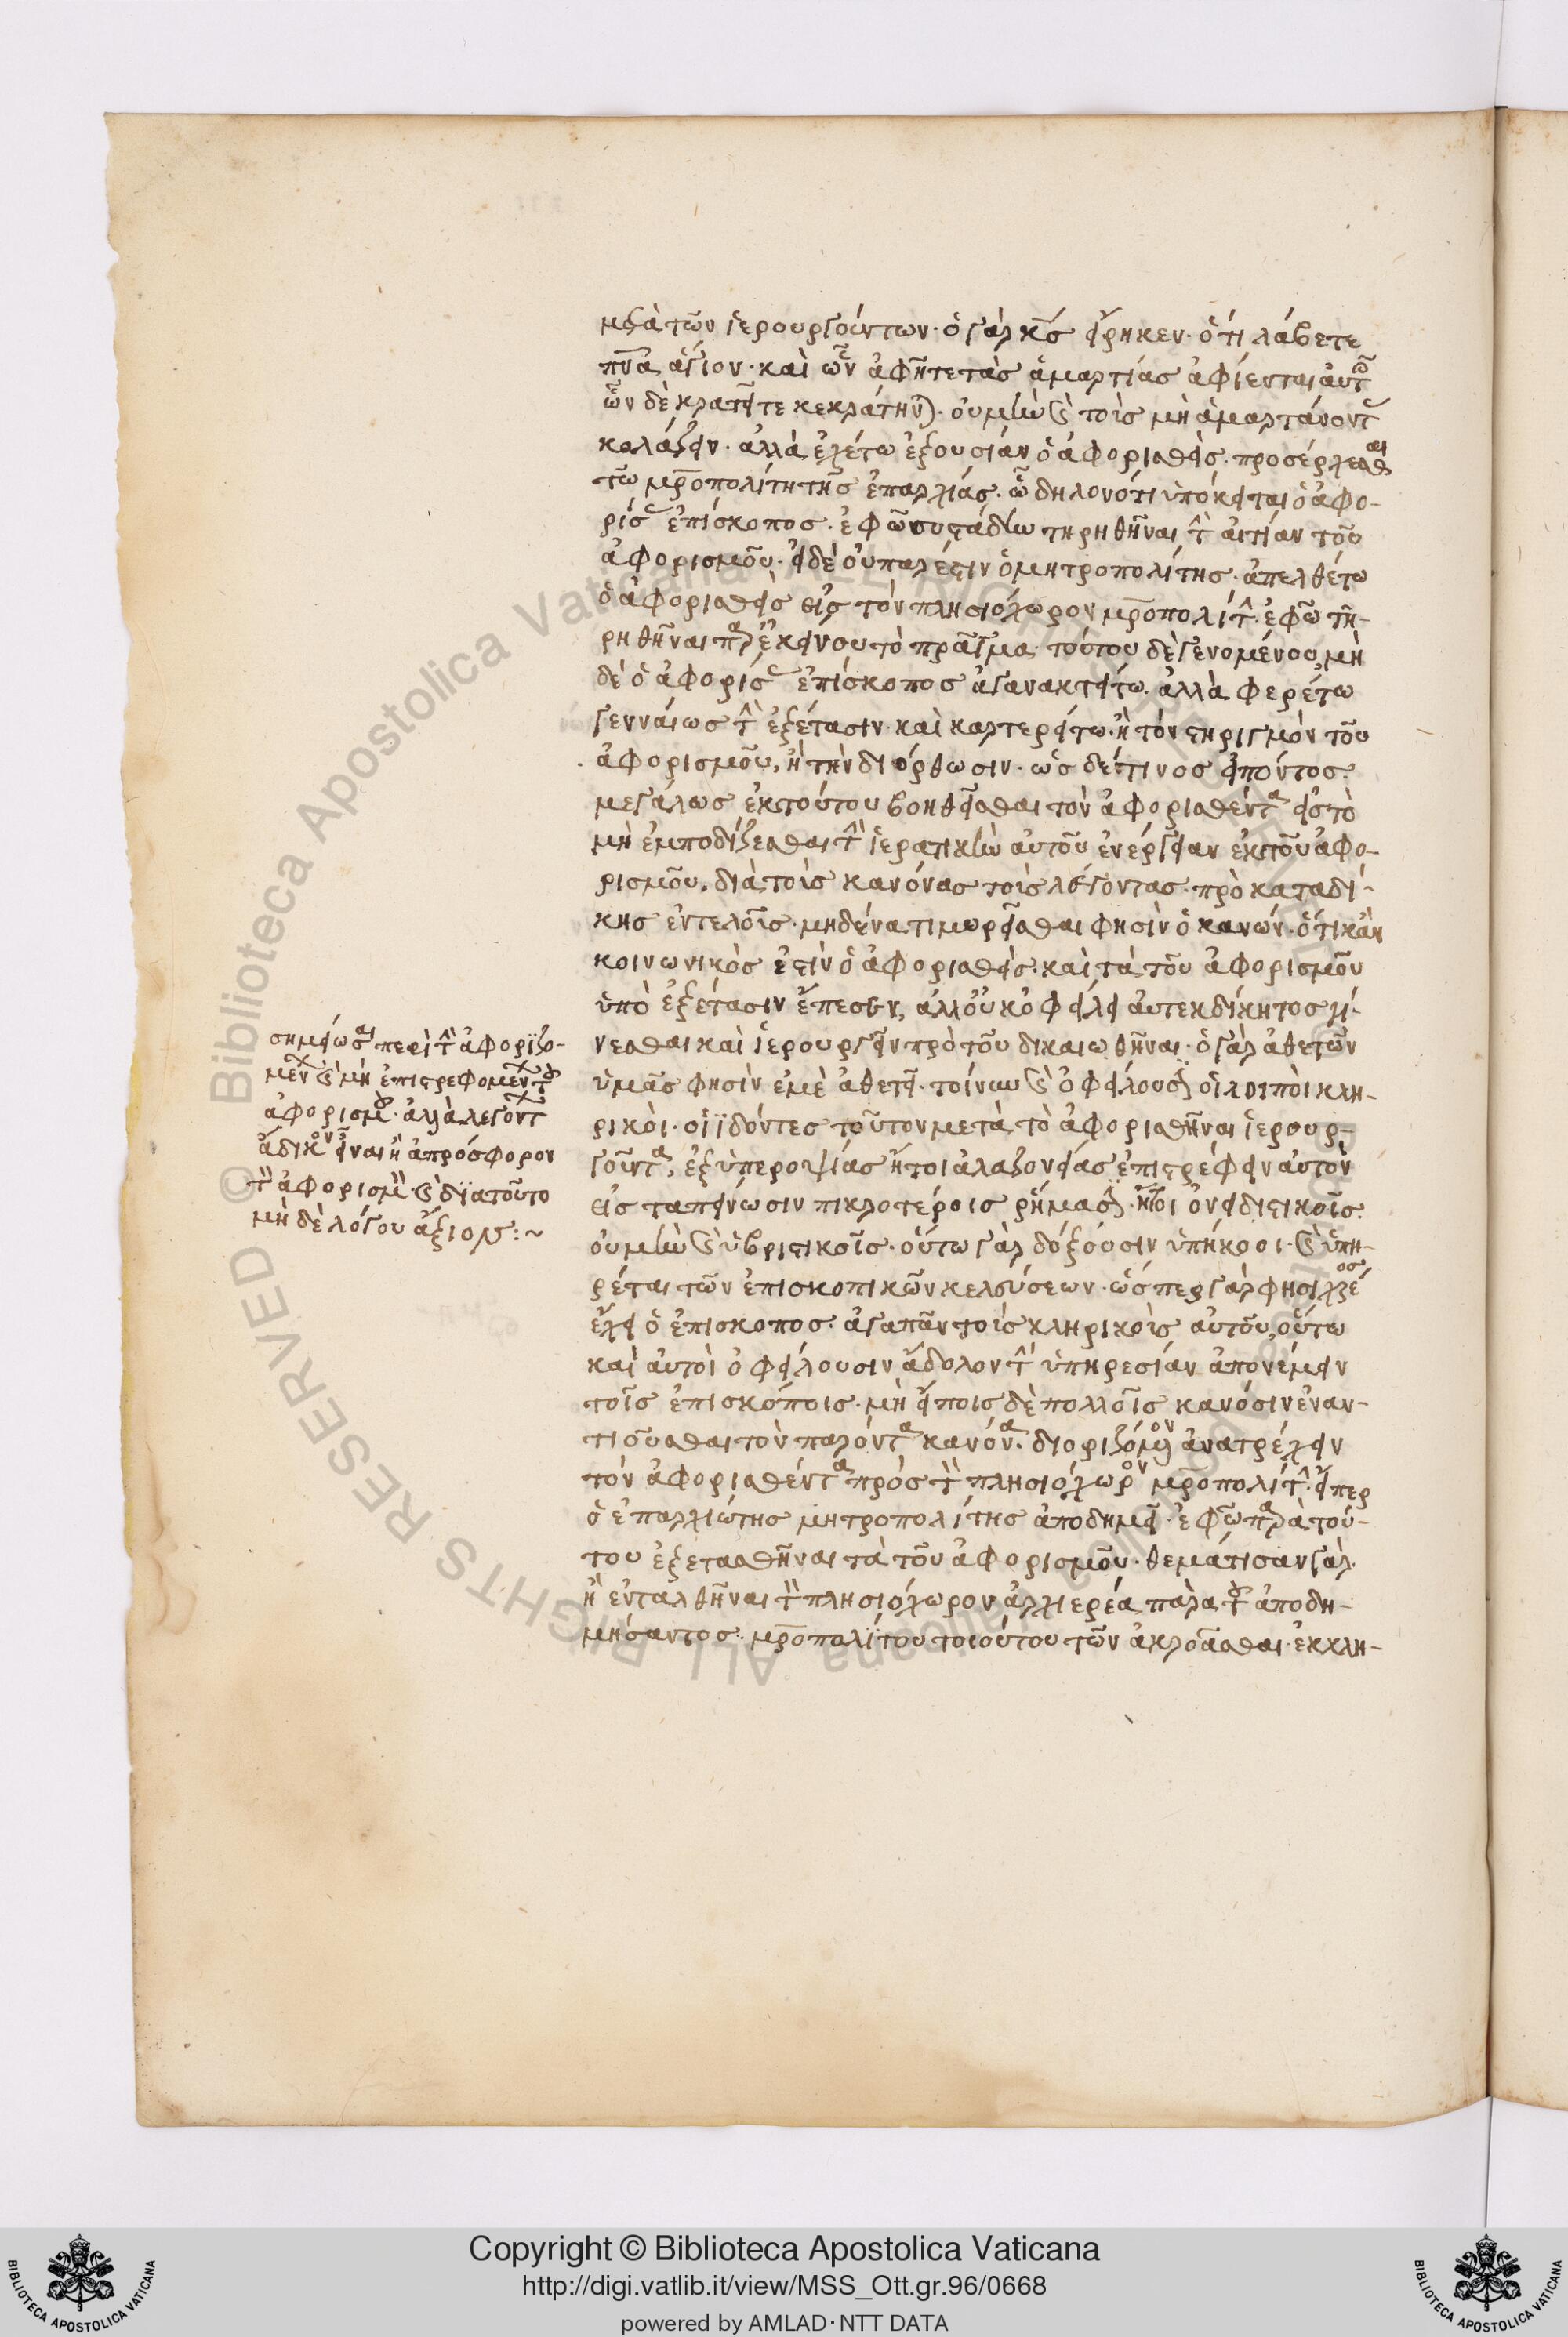 μετὰ τῶν ἱερουργούντων· ὁ γὰρ κ̅ς̅ εἴρηκεν· ὅτι λάβετε
πν̅α̅ ἅγιον· καὶ ὧν ἀφῆτε τὰς ἁμαρτίας ἀφίενται αὐτοῖς
ὧν δὲ κρατῆτε κεκράτηνται. οὐ μὴν καὶ τοὺς μὴ ἁμαρτάνοντας
κολάζειν· ἀλλὰ ἐχέτω ἐξουσίαν ὁ ἀφορισθεὶς προσέρχεσθαι
τῷ μρ̅οπολίτῃ τῆς ἐπαρχίας· ᾧ δηλονότι ὑπόκειται ὁ ἀφο-
ρίσας ἐπίσκοπος. ἐφ ᾧ συσταδίω τηρηθῆναι τὴν αἰτίαν τοῦ
ἀφορισμοῦ· εἰ δὲ οὐ πάρεστιν ὁ μητροπολίτης· ἀπελθέτω
ὁ ἀφορισθεὶς εἰς τὸν πλησιόχωρον μρ̅οπολίτην· ἐφ ᾧ τη-
ρηθῆναι παρ ἐκείνου τὸ πρᾶγμα· τούτου δὲ γενομένου μὴ
δὲ ὁ ἀφορίσας ἐπίσκοπος ἀγανακτείτω· ἀλλὰ φερέτω
γενναίως τὴν ἐξέτασιν· καὶ καρτερείτω· ἢ τὸν στηριγμὸν τοῦ
ἀφορισμοῦ, ἢ τὴν διόρθωσιν· ὡς δέ τινος εἰπόντος·
μεγάλως ἐκ τούτου βοηθεῖσθαι τὸν ἀφορισθέντα εἰς τὸ
μὴ ἐμποδίζεσθαι τὴν ἱερατικὴν αὐτοῦ ἐνέργειαν ἐκ τοῦ ἀφο-
ρισμοῦ, διὰ τοὺς κανόνας τοὺς λέγοντας· πρὸ καταδί-
κης ἐντελοῦς· μηδένα τιμωρεῖσθαι φησὶν ὁ κανών· ὅτι κἂν
κοινωνικὸς ἐστὶν ὁ ἀφορισθείς· καὶ τὰ τοῦ ἀφορισμοῦ
ὑπὸ ἐξέτασιν ἔπεσεν, ἀλλ οὐκ ὀφείλει αὐτεκδίκητος γί-
νεσθαι καὶ ἱερουργεῖν πρὸ τοῦ δικαιωθῆναι· ὁ γὰρ ἀθετῶν
ὑμᾶς φησὶν ἐμὲ ἀθετεῖ· τοίνυν καὶ ὀφείλουσιν οἱ λοιποὶ κλη-
ρικοί· οἱ ἰδόντες τοῦτον μετὰ τὸ ἀφορισθῆναι ἱερουρ-
γοῦντα, ἐξ ὑπεροψίας ἤτοι ἀλαζονείας ἐπιστρέφειν αὐτὸν
εἰς ταπείνωσιν πικροτέροις ῥήμασιν· ἤτοι ὀνειδιστικοῖς·
οὐ μὴν καὶ ὑβριστικοῖς· οὕτω γὰρ δόξουσιν ὑπήκοοι· καὶ ὑπη-
ρέται τῶν ἐπισκοπικῶν κελεύσεων· ὥσπερ γὰρ φησὶ χρέος
ἔχει ὁ ἐπίσκοπος· ἀγαπᾶν τοὺς κληρικοὺς αὐτοῦ, οὕτω
καὶ αὐτοὶ ὀφείλουσιν ἄδολον τὴν ὑπηρεσίαν ἀπονέμειν
τοῖς ἐπισκόποις· μὴ εἴποις δὲ πολλοῖς κανόσιν ἐναν-
τιοῦσθαι τὸν παρόντα κανόνα· διοριζόμενον ἀνατρέχειν
τὸν ἀφορισθέντα πρὸς τὸν πλησιόχωρον μρ̅οπολίτην· εἴπερ
ὁ ἐπαρχιώτης μητροπολίτης ἀποδημεῖ· ἐφ ᾧ παρὰ τού-
του ἐξετασθῆναι τὰ τοῦ ἀφορισμοῦ· θεμάτισαν γὰρ
ἢ ἐνταλθῆναι τὸν πλησιόχωρον ἀρχιερέα παρὰ τοῦ ἀποδη-
μήσαντος μρ̅οπολίτου τοιούτου τῶν ἀκροᾶσθαι· ἐκκλη-
σημείωσαι περὶ τῶν ἀφοριζο-
μένων καὶ μὴ ἐπιστρεφομένων τοῦ
ἀφορισμοῦ· ἀλλὰ λεγόντων
ἄδικον εἶναι ἢ ἀπρόσφορον
τὸν ἀφορισμὸν· καὶ διὰ τοῦτο
μὴ δὲ λόγου ἄξιον :~
Copyright © Biblioteca Apostolica Vaticana
http://digi.vatlib.it/view/MSS_Ott.gr.96/0668
powered by AMLAD·NTT DATA